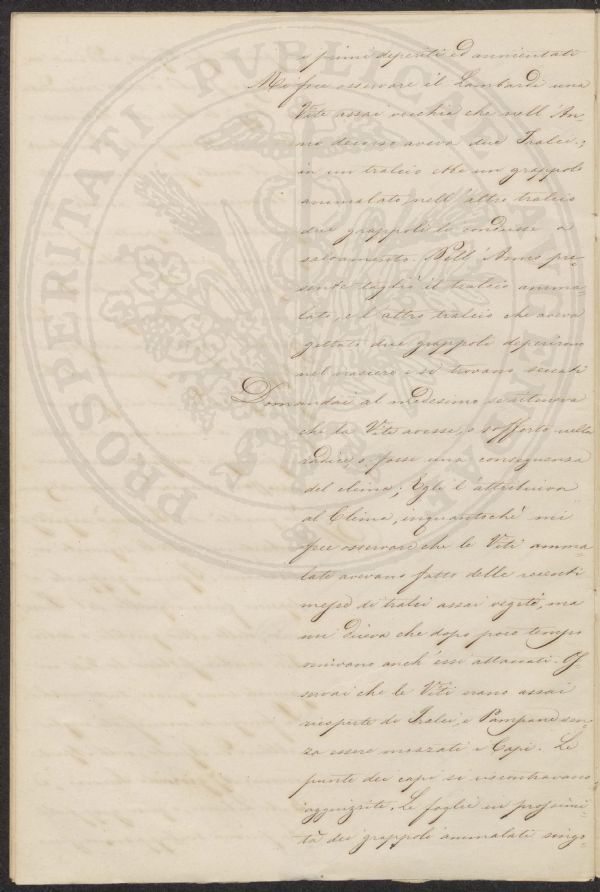 i primi deperiti ed annientati
Mi fece osservare il Lombardi una
Vite assai vecchia che nell' An=
no decorso aveva due Tralci;
in un tralcio ebbe un grappolo
ammalato, nell' altro tralcio
due grappoli le condusse a
salvamento. Nell' Anno pre=
sente tagliò il tralcio amma=
lato, e l' altro tralcio che aveva
gettato due grappoli deperirono
nel nascere e si trovano seccati
Domandai al medesimo se riteneva
che la Vite avesse, o sofferto nella
radice, o fosse una conseguenza
del clima; Egli l' attribuiva
al Clima, inquantochè mi
fece osservare che le Viti amma=
late avevano fatto delle recenti
messe di tralci assai vegete, ma
mi diceva che dopo poco tempo
venivano anch' essi attaccati. Os=
servai che le Viti erano assai
ricoperte di Tralci, e Pampani sen=
za essere mozzati i Capi. Le
punte dei capi si riscontravano
Le foglie in prossimi=
tà dei grappoli ammalati
PROSPERITATI PUBLICAE AUGENDAE